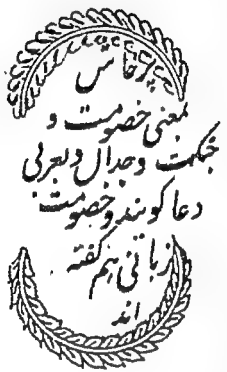 پرخاش
بمعنی خصومت و
جنگ و جدال و بعربی
دعا گویند و خصومت
زبانی هم گفته
اند